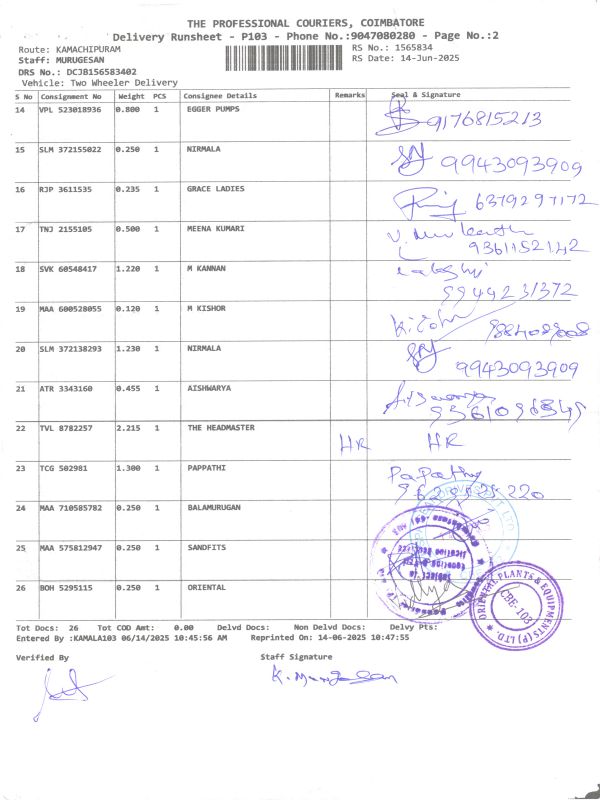 THE PROFESSIONAL COURIERS, COIMBATORE
Delivery Runsheet - P103 - Phone No.:9047080280 - Page No.:2
Route: KAMACHIPURAM RS No.: 1565834
Staff: MURUGESAN RS Date: 14-Jun-2025
DRS No.: DCJ8156583402
Vehicle: Two Wheeler Delivery
S No Consignment No Weight PCS Consignee Details Remarks Seal & Signature
14 VPL 523018936 0.800 1 EGGER PUMPS 9176815213
15 SLM 372155022 0.250 1 NIRMALA 9943093909
16 RJP 3611535 0.235 1 GRACE LADIES 6379297172
17 TNJ 2155105 0.500 1 MEENA KUMARI
9361152142
18 SVK 60548417 1.220 1 M KANNAN
9944231372
19 MAA 600528055 0.120 1 M KISHOR
20 SLM 372138293 1.230 1 NIRMALA
9943093909
21 ATR 3343160 0.455 1 AISHWARYA
22 TVL 8782257 2.215 1 THE HEADMASTER HR HR
23 TCG 502981 1.300 1 PAPPATHI
24 MAA 710585782 0.250 1 BALAMURUGAN
25 MAA 575812947 0.250 1 SANDFITS
26 BOH 5295115 0.250 1 ORIENTAL
ORIENTAL PLANTS & EQUIPMENTS (P) LTD.
CBE-103
Tot Docs: 26 Tot COD Amt: 0.00 Delvd Docs: Non Delvd Docs: Delvy Pts:
Entered By :KAMALA103 06/14/2025 10:45:56 AM Reprinted On : 14-06-2025 10:47:55
Verified By Staff Signature